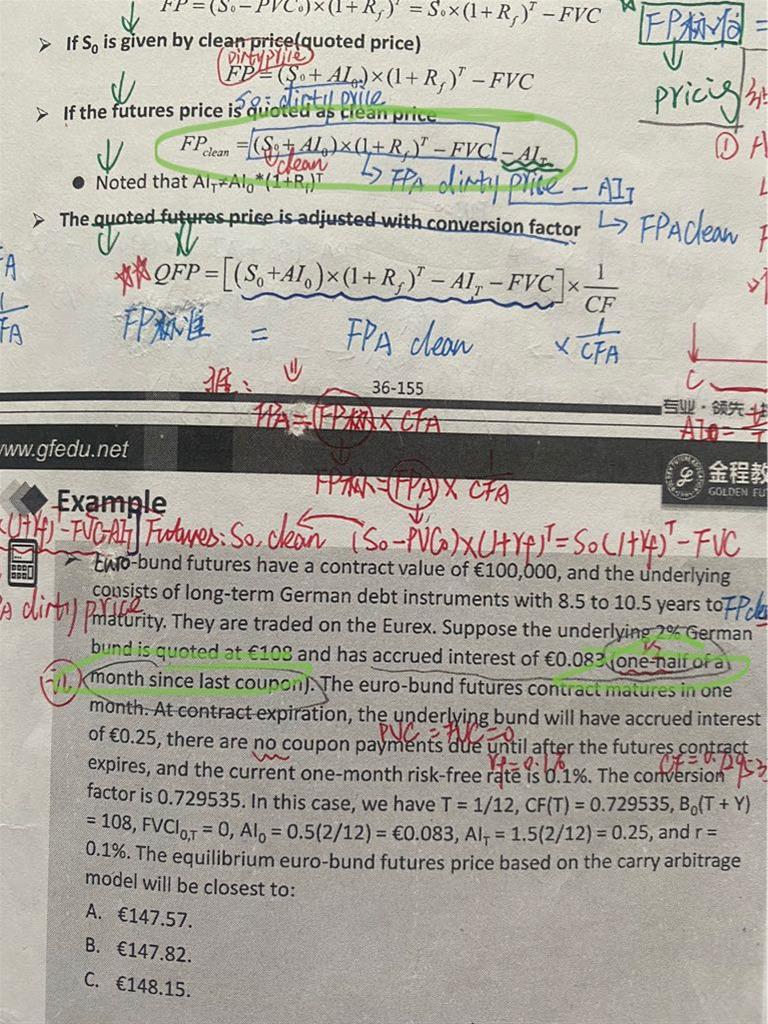 FP = (S₀ − PVC₀)×(1 + R_f)^T = S₀×(1 + R_f)^T − FVC
FP标准 =
➤ If S₀ is given by clean price(quoted price)
dirty price
FP = (S₀ + AI₀)×(1 + R_f)^T − FVC
pricing
S₀: dirty price
➤ If the futures price is quoted as clean price
FP_clean = (S₀ + AI₀)×(1 + R_f)^T − FVC − AI_T
① A
clean
FPA dirty price − AI_T
● Noted that AI_T≠AI₀*(1+R_f)^T
➤ The quoted futures price is adjusted with conversion factor
FPA clean
☆☆ QFP = [(S₀+AI₀)×(1 + R_f)^T − AI_T − FVC]× 1/CF
FP标准 = FPA clean × 1/CFA
C
推:
36-155
专业·领先
FPA = FP标 × CFA
AI₀ =
www.gfedu.net
金程教
GOLDEN FU
FP标 = FPA × 1/CFA
Example
(1+rf)^T − FVC − AI_T] Futures: S₀, clean (S₀ − PVC₀)×(1+rf)^T = S₀(1+rf)^T − FVC
➤ Euro-bund futures have a contract value of €100,000, and the underlying
consists of long-term German debt instruments with 8.5 to 10.5 years to
A dirty price
FPcle
maturity. They are traded on the Eurex. Suppose the underlying 2% German
bund is quoted at €108 and has accrued interest of €0.083 (one-half of a
month since last coupon). The euro-bund futures contract matures in one
month. At contract expiration, the underlying bund will have accrued interest
PVC = FVC = 0
of €0.25, there are no coupon payments due until after the futures contract
rf = 0.1%
CF = 0.72953
expires, and the current one-month risk-free rate is 0.1%. The conversion
factor is 0.729535. In this case, we have T = 1/12, CF(T) = 0.729535, B₀(T + Y)
= 108, FVCI₀,T = 0, AI₀ = 0.5(2/12) = €0.083, AI_T = 1.5(2/12) = 0.25, and r =
0.1%. The equilibrium euro-bund futures price based on the carry arbitrage
model will be closest to:
A. €147.57.
B. €147.82.
C. €148.15.